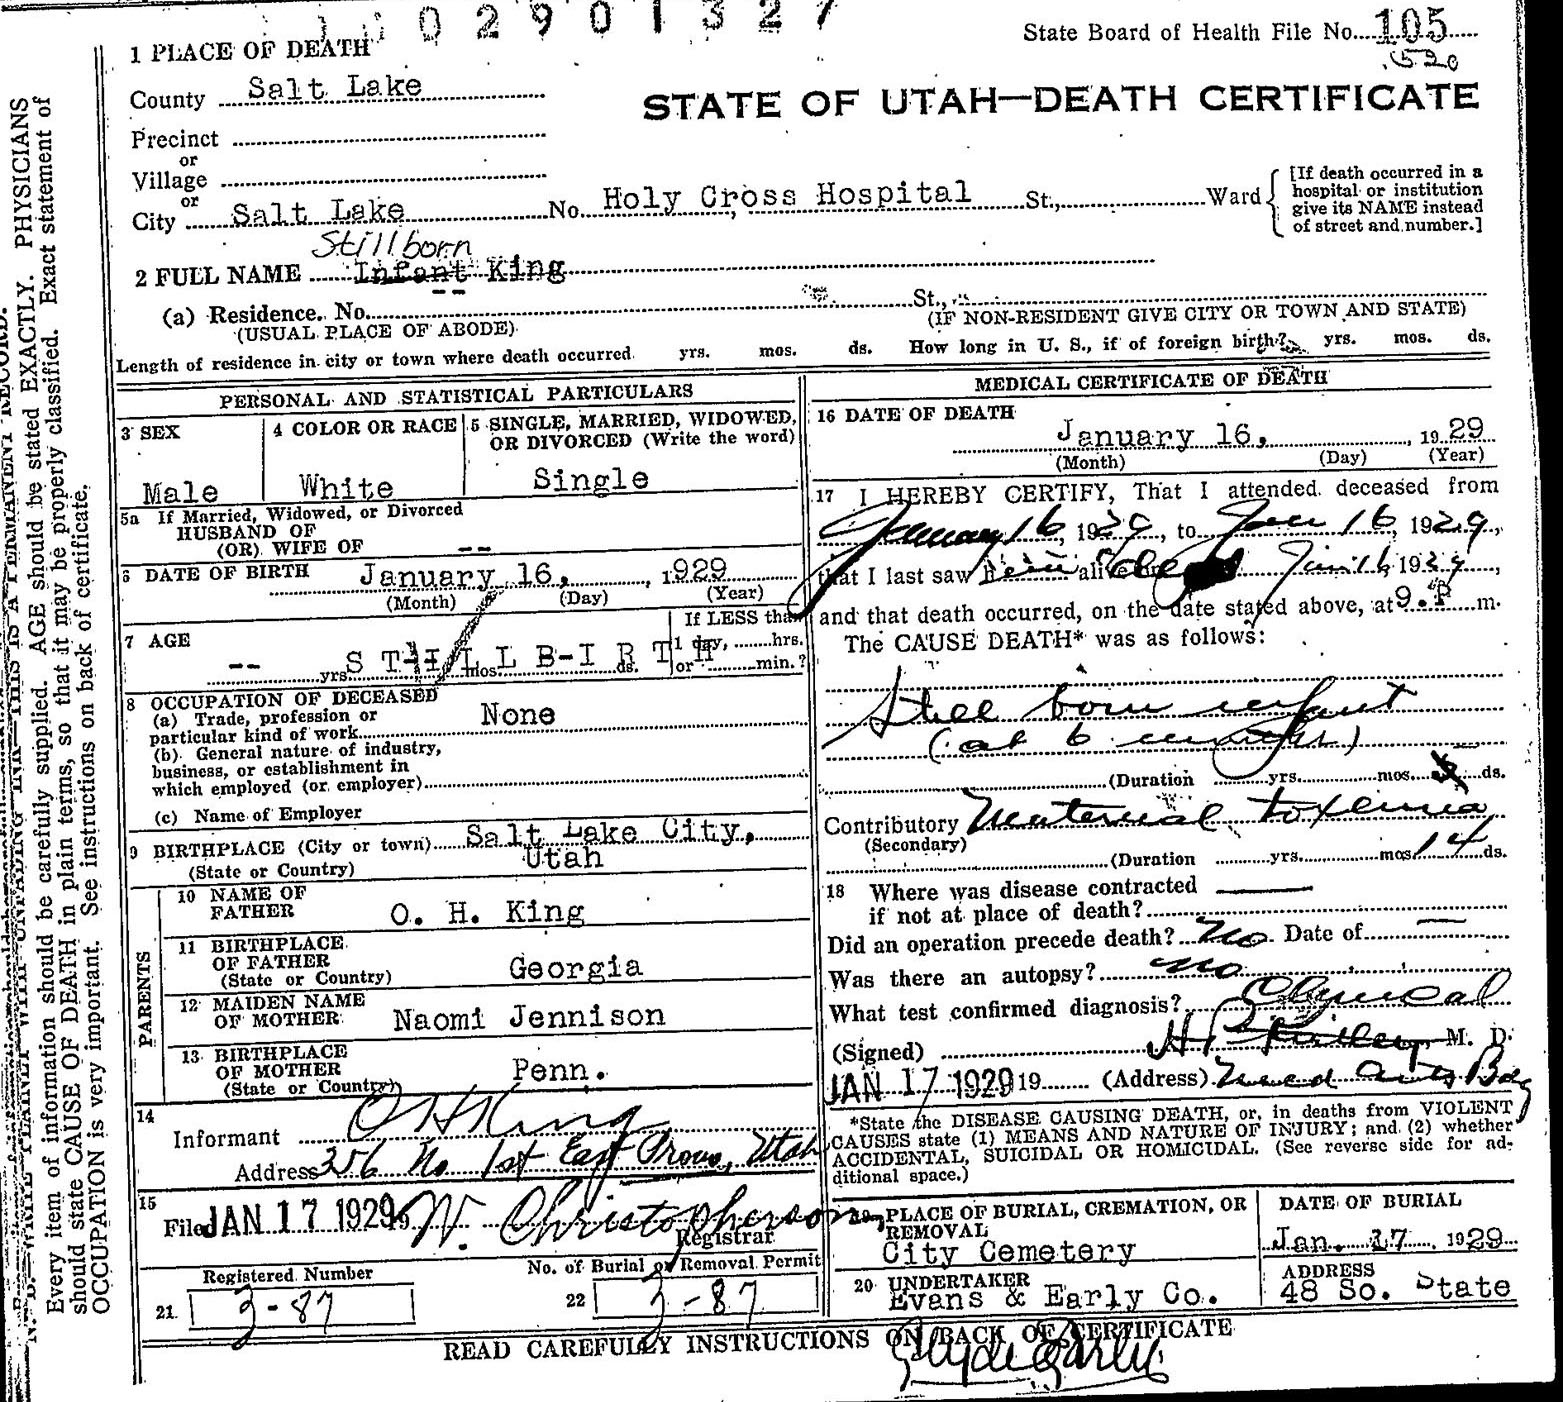 02901327
State Board of Health File No. 105
.520
1 PLACE OF DEATH
County Salt Lake
STATE OF UTAH—DEATH CERTIFICATE
Precinct
or
Village
or
City Salt Lake No. Holy Cross Hospital St., Ward
[If death occurred in a hospital or institution give its NAME instead of street and number.]
Stillborn
2 FULL NAME Infant King
--
(a) Residence. No. St.,
(USUAL PLACE OF ABODE) (IF NON-RESIDENT GIVE CITY OR TOWN AND STATE)
Length of residence in city or town where death occurred yrs. mos. ds. How long in U. S., if of foreign birth? yrs. mos. ds.
PERSONAL AND STATISTICAL PARTICULARS
3 SEX
Male
4 COLOR OR RACE
White
5 SINGLE, MARRIED, WIDOWED,
OR DIVORCED (Write the word)
Single
5a If Married, Widowed, or Divorced
HUSBAND OF
(OR) WIFE OF --
6 DATE OF BIRTH January 16, , 1929
(Month) (Day) (Year)
7 AGE
If LESS than
1 day, hrs.
or min.?
-- yrs. mos. ds.
STILLBIRTH
8 OCCUPATION OF DECEASED
(a) Trade, profession or
particular kind of work None
(b) General nature of industry,
business, or establishment in
which employed (or employer)
(c) Name of Employer
9 BIRTHPLACE (City or town) Salt Lake City,
(State or Country) Utah
PARENTS
10 NAME OF
FATHER O. H. King
11 BIRTHPLACE
OF FATHER
(State or Country) Georgia
12 MAIDEN NAME
OF MOTHER Naomi Jennison
13 BIRTHPLACE
OF MOTHER
(State or Country) Penn.
14
Informant O H King
Address 356 No 1st East Provo, Utah
15
Filed JAN 17 1929 W. Christopherson,
Registrar
Registered Number
21. 3-87
No. of Burial or Removal Permit
22 3-87
MEDICAL CERTIFICATE OF DEATH
16 DATE OF DEATH
January 16, , 1929
(Month) (Day) (Year)
17 I HEREBY CERTIFY, That I attended deceased from
January 16, 1929, to Jan 16, 1929,
that I last saw h alive on Jan 16, 1929,
and that death occurred, on the date stated above, at 9. P m.
The CAUSE DEATH* was as follows:
Still born infant
(at 6 months)
(Duration yrs. mos. ds.
Contributory Maternal toxemia
(Secondary)
(Duration yrs. mos. 14 ds.
18 Where was disease contracted
if not at place of death?
Did an operation precede death? No. Date of —
Was there an autopsy? no
What test confirmed diagnosis? Clynical
(Signed) M. D.
JAN 17 1929 19 (Address) Med Arts Bdg
*State the DISEASE CAUSING DEATH, or, in deaths from VIOLENT
CAUSES state (1) MEANS AND NATURE OF INJURY; and (2) whether
ACCIDENTAL, SUICIDAL OR HOMICIDAL. (See reverse side for ad-
ditional space.)
19 PLACE OF BURIAL, CREMATION, OR
REMOVAL
City Cemetery
DATE OF BURIAL
Jan. 17 , 1929
20 UNDERTAKER
Evans & Early Co.
ADDRESS
48 So. State
READ CAREFULLY INSTRUCTIONS ON BACK OF CERTIFICATE
Clyde Early
N. B.—WRITE PLAINLY WITH UNFADING INK—THIS IS A PERMANENT RECORD.
Every item of information should be carefully supplied. AGE should be stated EXACTLY. PHYSICIANS
should state CAUSE OF DEATH in plain terms, so that it may be properly classified. Exact statement of
OCCUPATION is very important. See instructions on back of certificate.